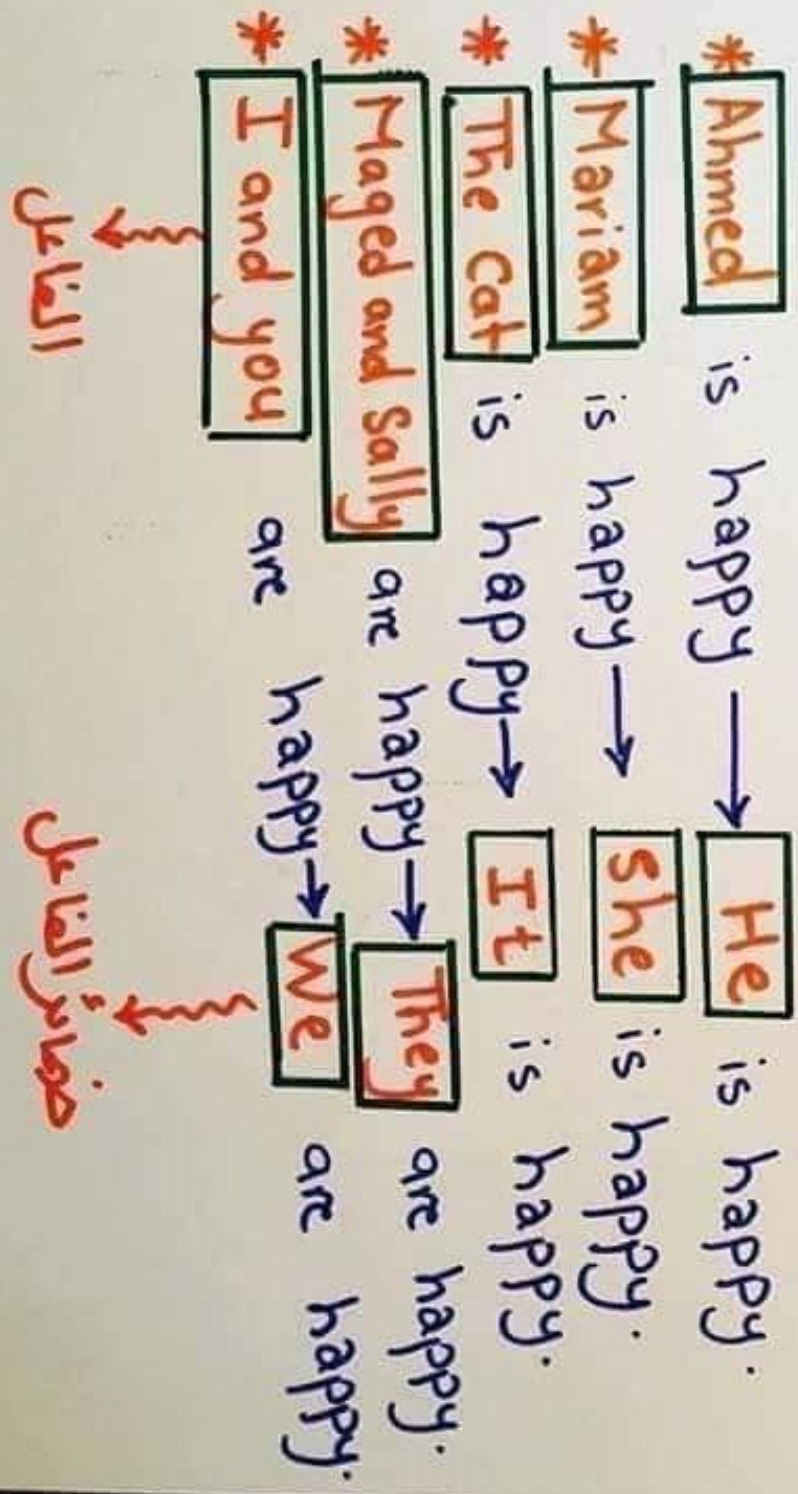 * Ahmed is happy → He is happy.
* Mariam is happy → She is happy.
* The Cat is happy → It is happy.
* Maged and Sally are happy → They are happy.
* I and you are happy → We are happy.
الفاعل
ضمائر الفاعل